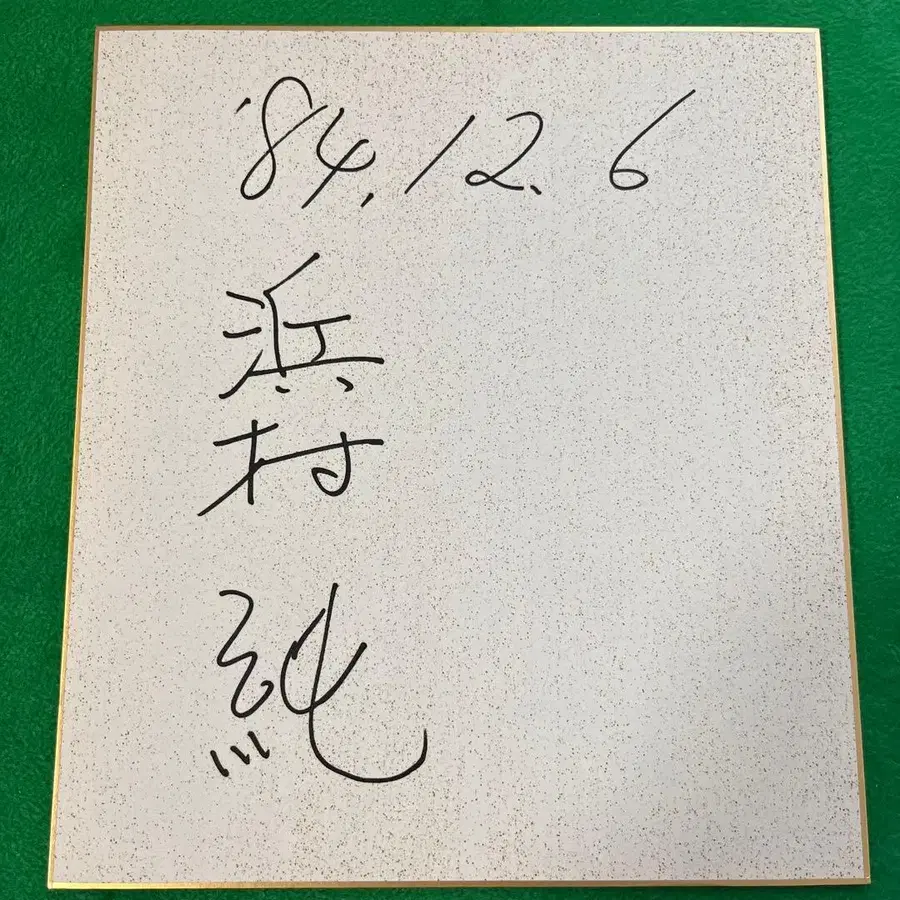 '84.12.6
浜村純